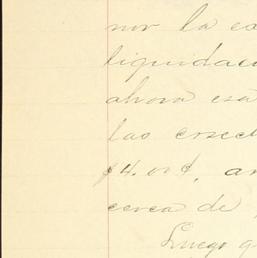 nor la
liquidac
ahora esa
las cosech
$4.00¢, an
cerca de
Luego q